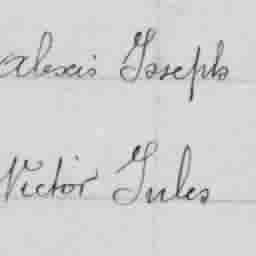 Alexis Joseph
Victor Jules